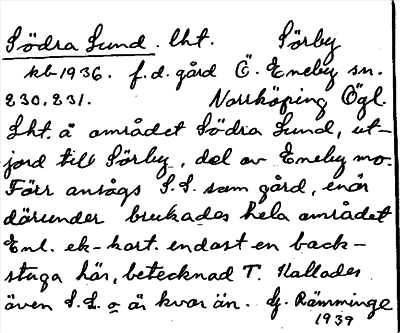 Södra Lund. lht. Sörby
kb-1936. f.d. gård Ö. Eneby sn.
230.231. Norrköping Ögl.
Lht. å området Södra Lund, ut-
jord till Sörby, del av Eneby mo.
Förr ansågs S.L. som gård, enär
därunder brukades hela området
Enl. ek-kart. endast en back-
stuga här, betecknad T. Kallades
även S.L. o är kvar än. Hj. Rämminge
1939